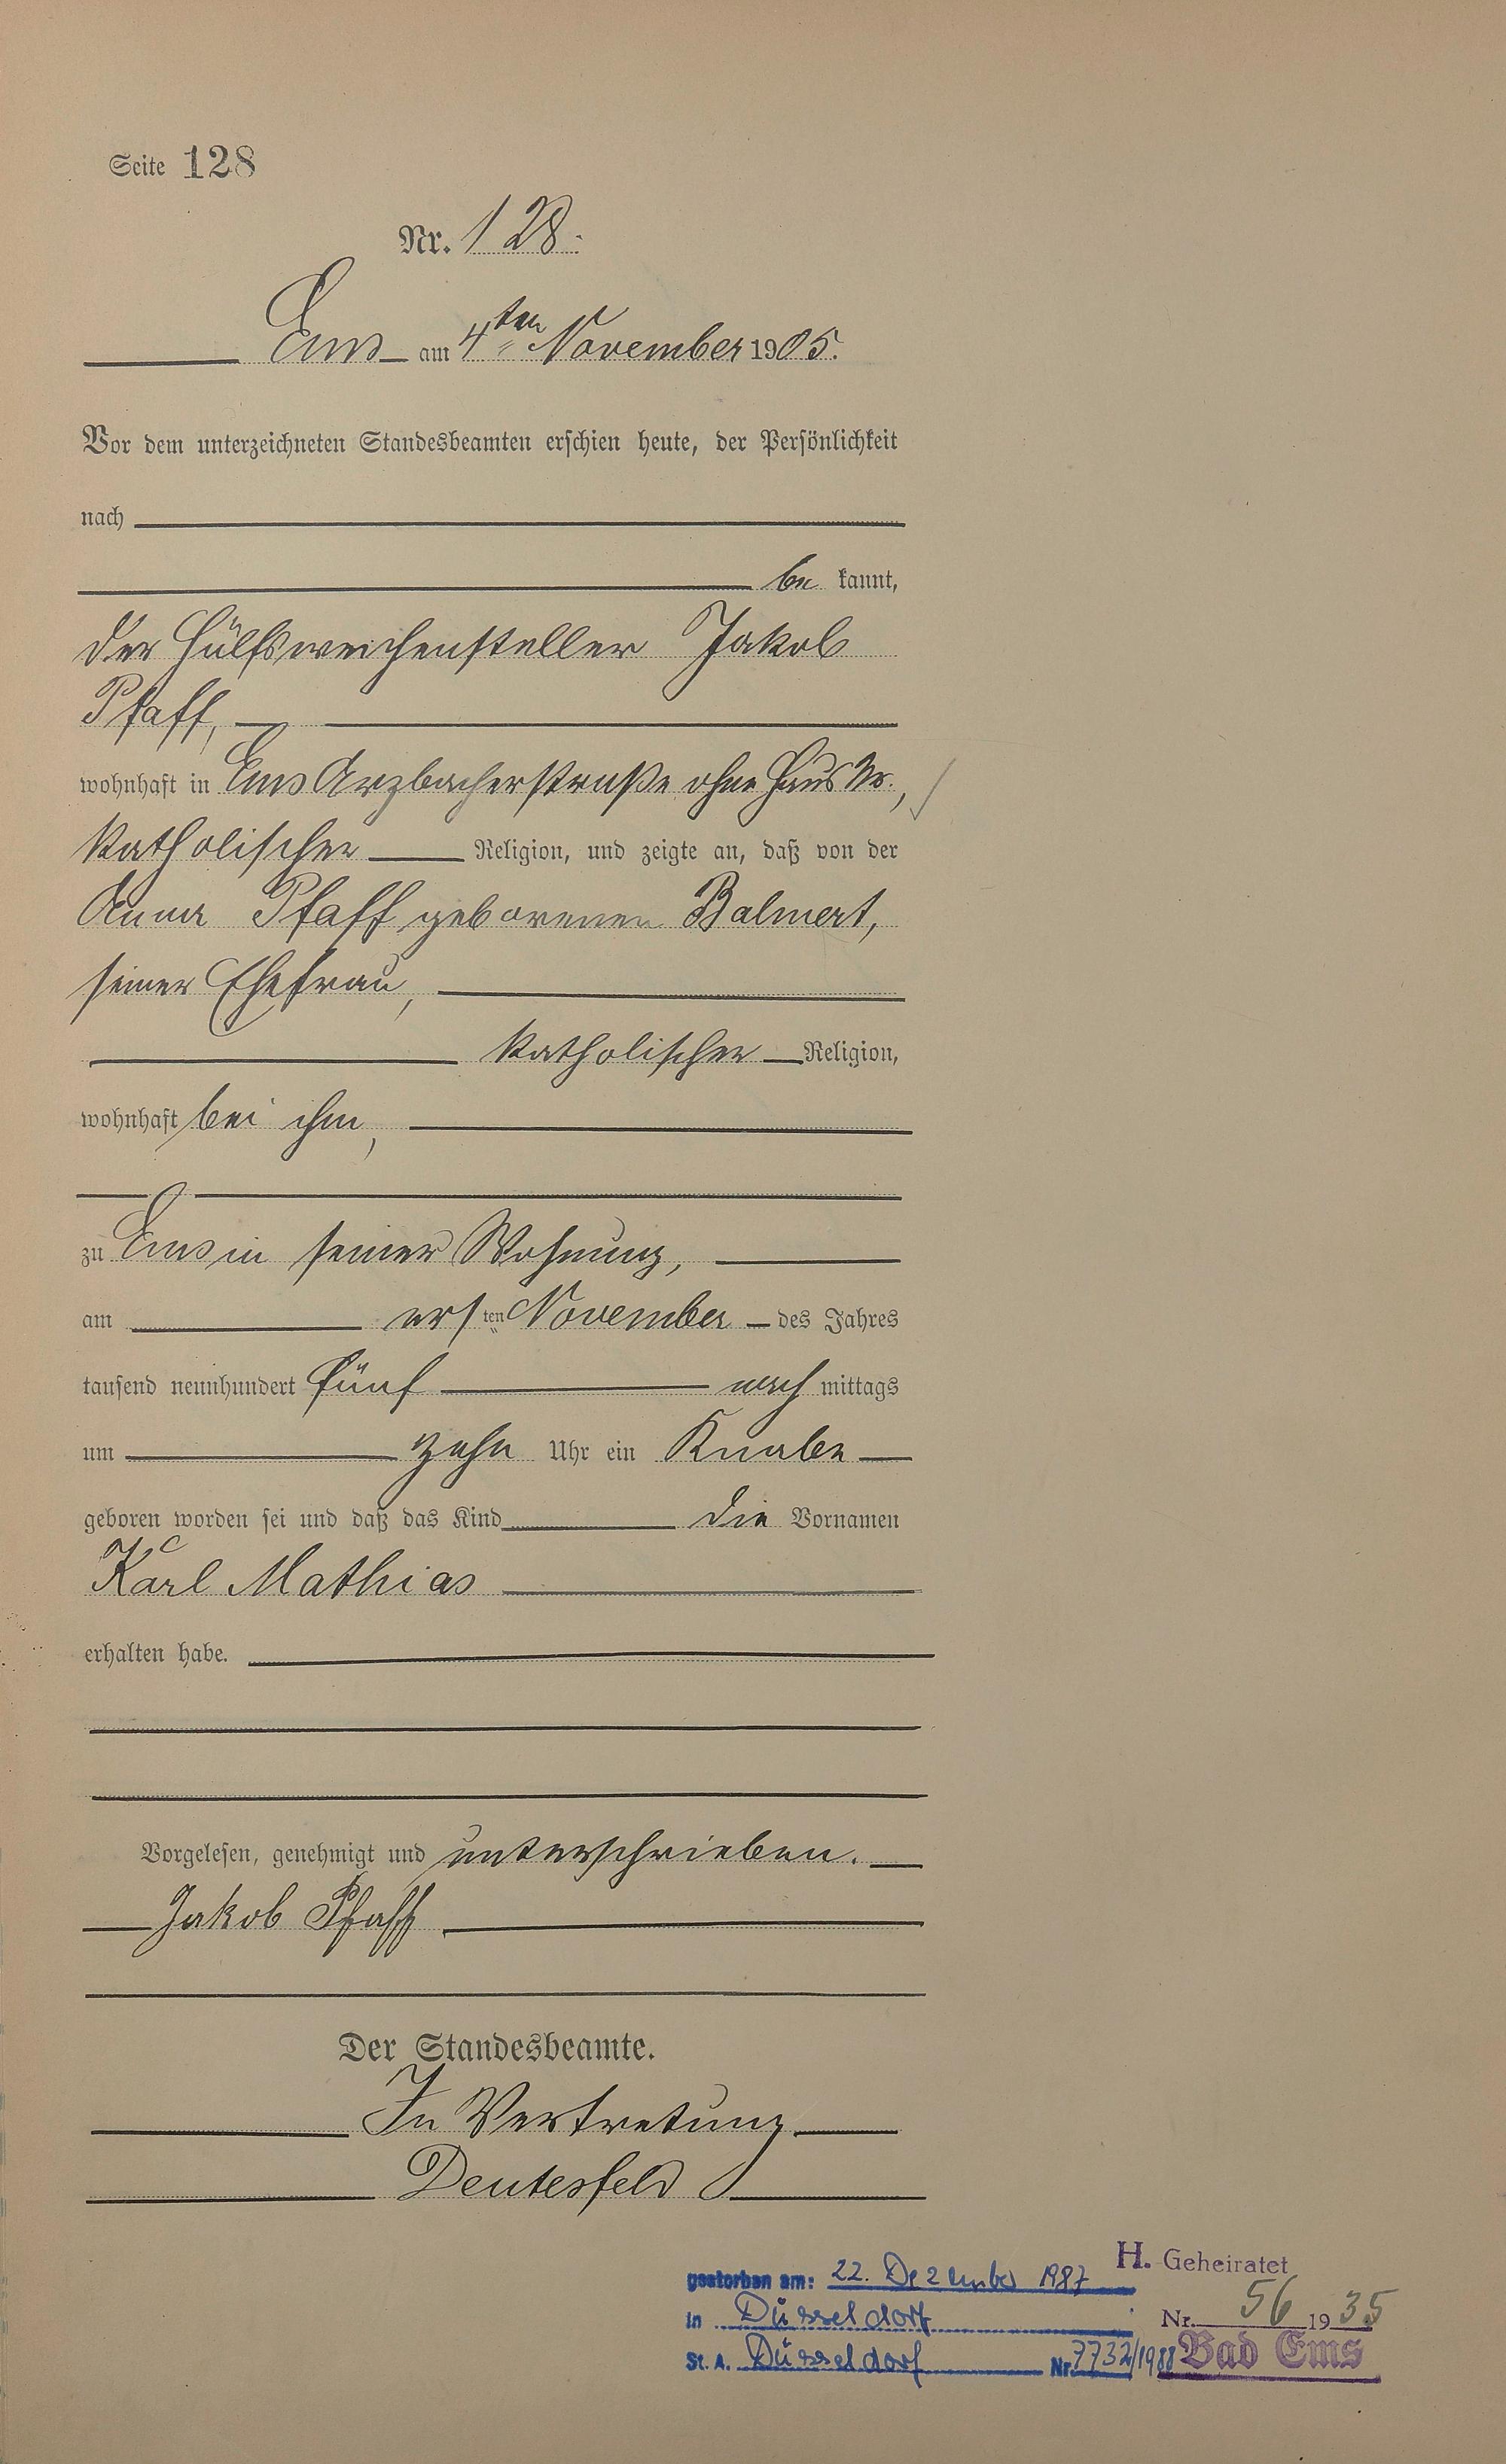 Seite 128
Nr. 128.
Ems am 4ten November 1905.
Vor dem unterzeichneten Standesbeamten erschien heute, der Persönlichkeit
nach
be kannt,
der Hülfsweichensteller Jakob
Pfaff,
wohnhaft in Ems Arzbacherstraße ohne Haus Nr.,
katholischer Religion, und zeigte an, daß von der
Anna Pfaff geborenen Balmert,
seiner Ehefrau,
katholischer Religion,
wohnhaft bei ihm,
zu Ems in seiner Wohnung,
am ersten November des Jahres
tausend neunhundert fünf nach mittags
um zehn Uhr ein Knabe
geboren worden sei und daß das Kind die Vornamen
Karl Mathias
erhalten habe.
Vorgelesen, genehmigt und unterschrieben.
Jakob Pfaff
Der Standesbeamte.
In Vertretung
Deutesfeld
H. Geheiratet
Nr. 56 1935
Bad Ems
gestorben am: 22. Dezember 1987
in Düsseldorf
St. A. Düsseldorf Nr. 7732/1988